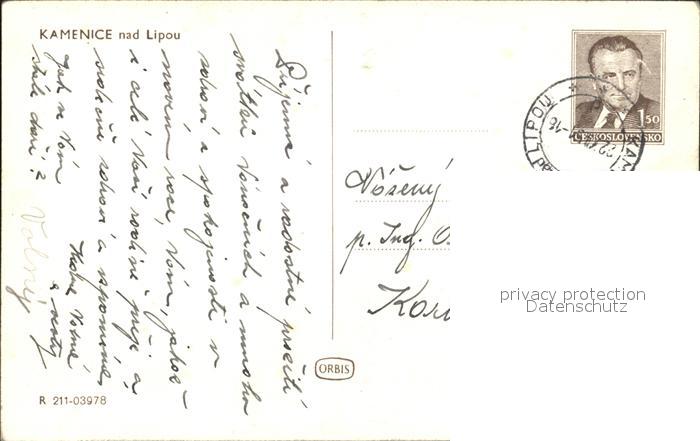 KAMENICE nad Lipou
Příjemné a radostné prožití
svátků Vánočních a mnoho
zdraví a spokojenosti v
novém roce, Vám, jakož
i celé Vaší rodině přeje a
srdečně zdraví a vzpomíná,
Jak se Vám
stále daří?
Volný
R 211-03978
ORBIS
1 50
ČESKOSLOVENSKO
LIPOU
KAM
Vážený
p. Ing. O
privacy protection
Datenschutz